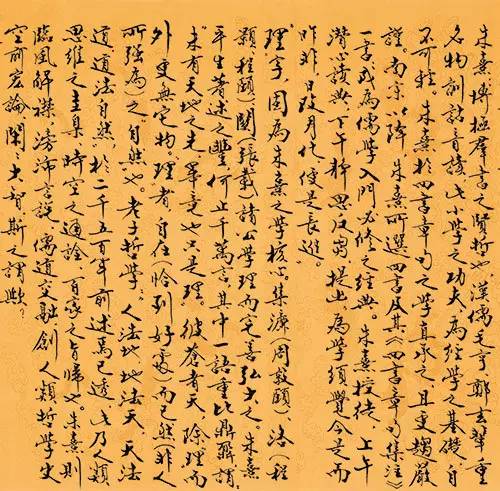 朱熹博極羣書之賢哲也漢儒毛亨鄭玄輩重
名物訓詁音韻此小學之功夫為經學之基礎自
不可輕朱熹於四書章句之學真承之且更趨嚴
謹南宗以降朱熹所選四書及其《四書章句集注》
一書成為儒學入門必修之經典。朱熹授徒,上午
潛心讀典下午靜思反芻提出為學須覺今是而
昨非,日改月化便是長進。
理字,固為朱熹之學核心集濂(周敦頤)洛(程
顥、程頤)關(張載)諸公學理而完善弘大之。朱熹
平生著述之豐何止千萬言其中一語重比鼎鼐謂:
未有天地之先畢竟也只是理彼蒼者天除理而
外更無它物。理者,自在(恰到好處)而已然(非人
所強為)之自然也老子哲學,人法地地法天天法
道道法自然,於二千五百年前述焉已透此乃人類
思維之圭臬時空之通詮,百家之旨歸也。朱熹則
臨風解襟滂沛言說,儒道交融,創人類哲學史
空前宏論大智斯之謂歟?